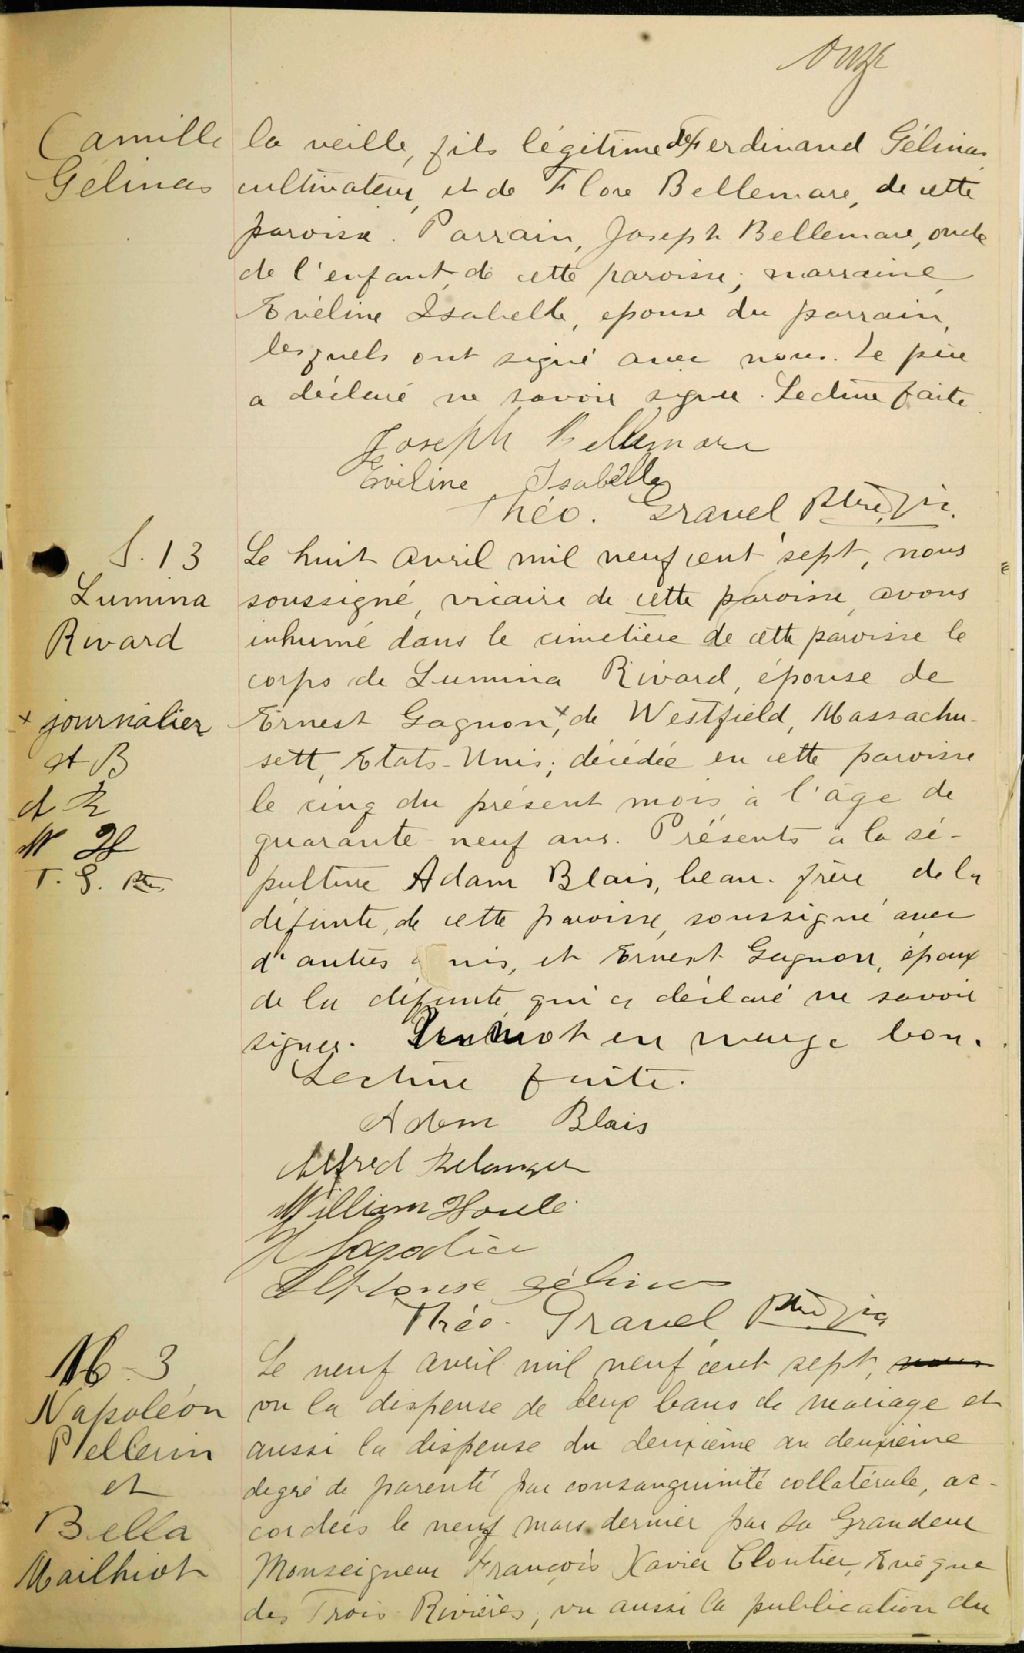 Onze
Camille
Gélinas
la veille, fils légitime de Ferdinand Gélinas
cultivateur, et de Flore Bellemare, de cette
paroisse. Parrain, Joseph Bellemare, oncle
de l'enfant de cette paroisse; marraine
Evéline Isabelle, epouse du parrain,
lesquels ont signé avec nous. Le père
a déclaré ne savoir signer. Lecture faite
Joseph Bellemare
Evéline Isabelle
Théo. Gravel Ptre, Vic.
S. 13
Lumina
Rivard
x journalier
A B
A B
W H
T. G. Ptre
Le huit avril mil neuf cent sept, nous
soussigné, vicaire de cette paroisse, avons
inhumé dans le cimetière de cette paroisse le
corps de Lumina Rivard, épouse de
Ernest Gagnon,x de Westfield, Massachu-
sett, Etats-Unis; décédée en cette paroisse
le cinq du présent mois à l'âge de
quarante neuf ans. Présents à la sé-
pulture Adam Blais, beau-frère de la
défunte, de cette paroisse, soussigné avec
d'autres amis, et Ernest Gagnon, époux
de la défunte qui a déclaré ne savoir
signer. mot en marge bon.
Lecture faite.
Adam Blais
Alfred Belanger
William Houle
Alphonse Gélinas
Théo. Gravel Ptre Vic
M-3
Napoléon
Pellerin
et
Bella
Mailhiot
Le neuf avril mil neuf cent sept, nous
vu la dispense de deux bans de mariage et
aussi la dispense du deuxième au deuxième
degré de parenté par consanguinité collatérale, ac-
cordées le neuf mars dernier par Sa Grandeur
Monseigneur François Xavier Cloutier, Evêque
des Trois Rivières, vu aussi la publication du